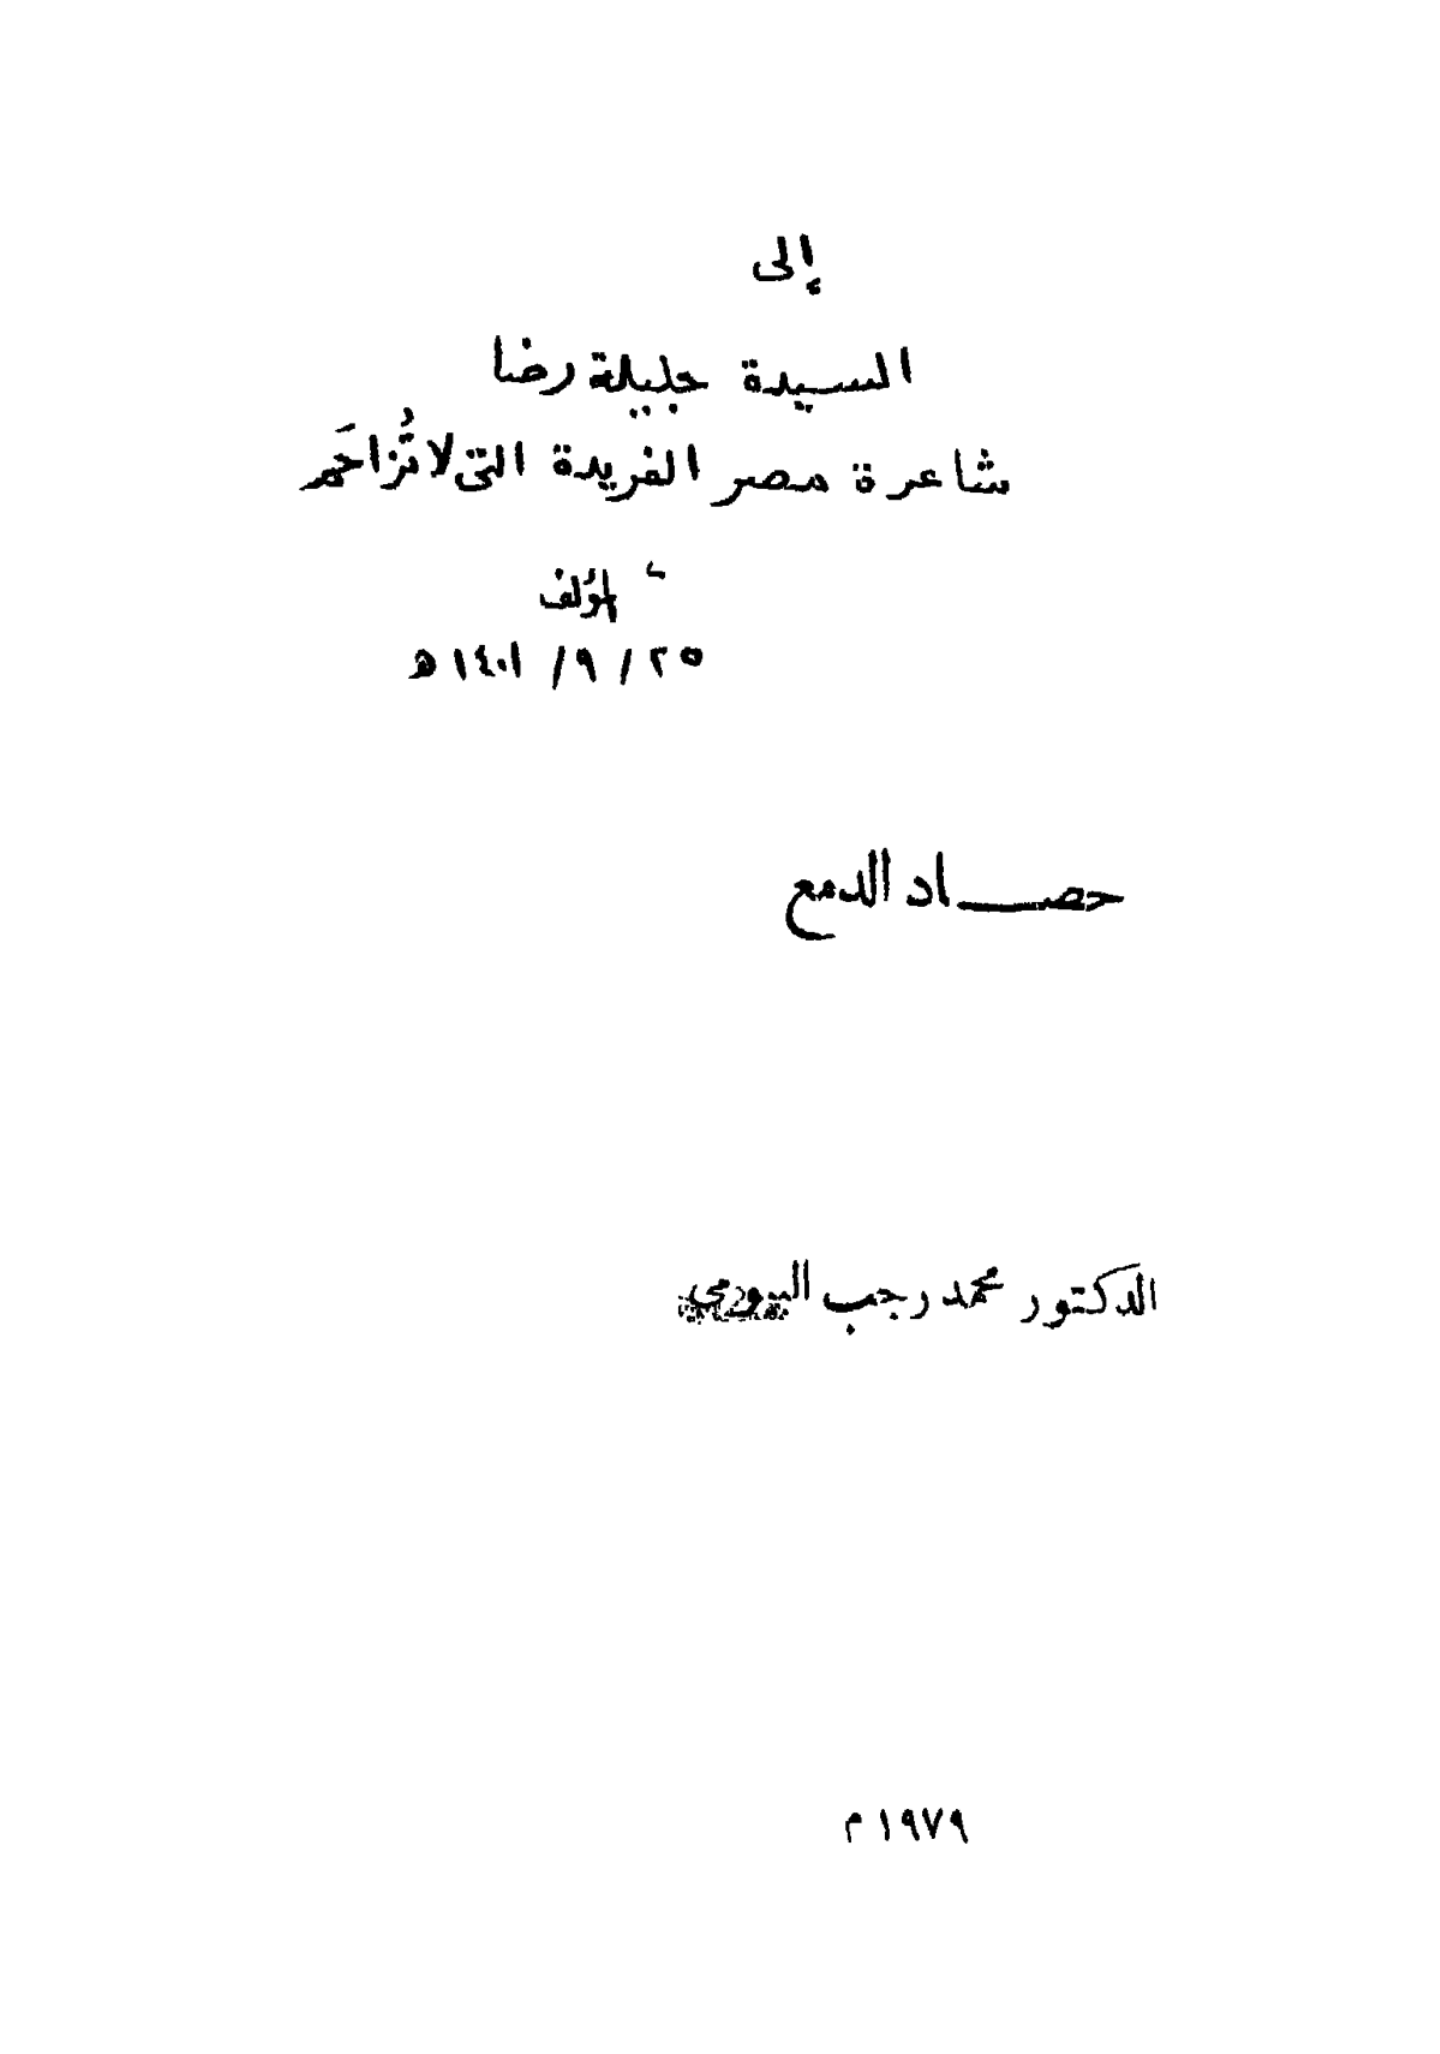 إلى
السيدة جليلة رضا
شاعرة مصر الفريدة التى لا تُزاحَم
المؤلف
٢٥ / ٩ / ١٤٠١ ه
حصاد الدمع
الدكتور محمد رجب البيومي
١٩٧٩ م